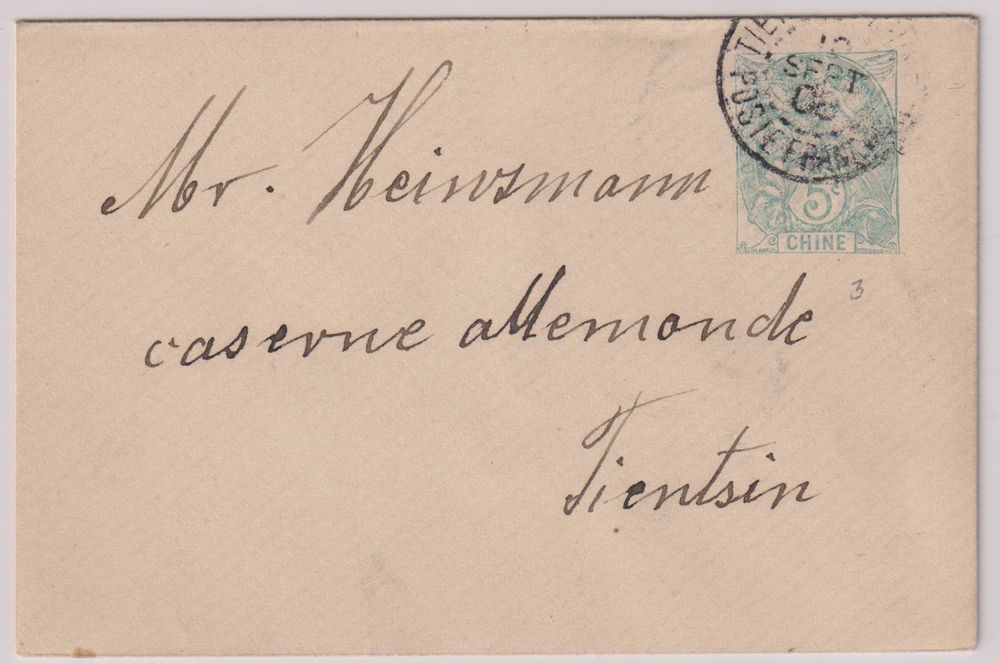 SEPT
POSTE FRANÇ
5
CHINE
Mr. Heinsmann
3
caserne allemande
Tientsin